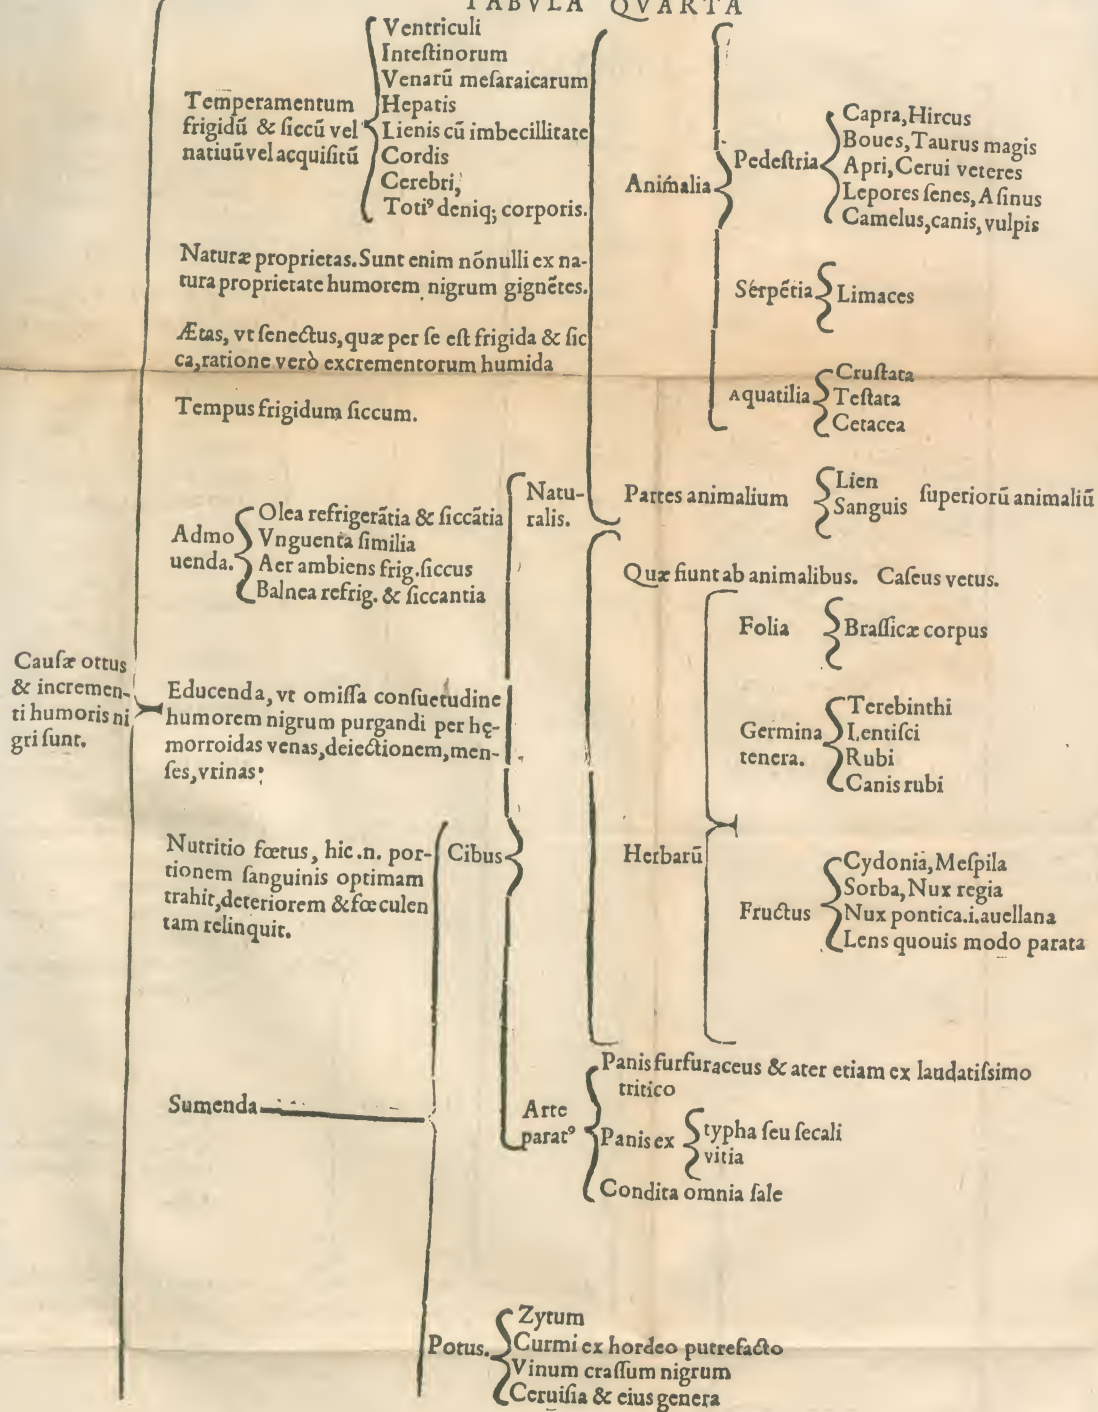 TABVLA QVARTA
Cauſæ ortus
& incremen-
ti humoris ni
gri ſunt.
Temperamentum
frigidū & ſiccū vel
natiuū vel acquiſitū
Ventriculi
Inteſtinorum
Venarū meſaraicarum
Hepatis
Lienis cū imbecillitate
Cordis
Cerebri,
Totiꝰ deniq; corporis.
Naturæ proprietas. Sunt enim nōnulli ex na-
tura proprietate humorem nigrum gignētes.
Ætas, vt ſenectus, quæ per ſe eſt frigida & ſic
ca, ratione verò excrementorum humida
Tempus frigidum ſiccum.
Admo
uenda.
Olea refrigerātia & ſiccātia
Vnguenta ſimilia
Aer ambiens frig. ſiccus
Balnea refrig. & ſiccantia
Educenda, vt omiſſa conſuetudine
humorem nigrum purgandi per hę-
morroidas venas, deiectionem, men-
ſes, vrinas:
Nutritio fœtus, hic .n. por-
tionem ſanguinis optimam
trahit, deteriorem & fœculen
tam relinquit.
Sumenda
Cibus
Natu-
ralis.
Animalia
Pedeſtria
Capra, Hircus
Boues, Taurus magis
Apri, Cerui veteres
Lepores ſenes, Aſinus
Camelus, canis, vulpis
Serpētia
Limaces
Aquatilia
Cruſtata
Teſtata
Cetacea
Partes animalium
Lien
Sanguis
ſuperiorū animaliū
Quæ fiunt ab animalibus. Caſeus vetus.
Herbarū
Folia
Braſſicæ corpus
Germina
tenera.
Terebinthi
Lentiſci
Rubi
Canis rubi
Fructus
Cydonia, Meſpila
Sorba, Nux regia
Nux pontica .i. auellana
Lens quouis modo parata
Arte
paratꝰ
Panis furfuraceus & ater etiam ex laudatiſsimo
tritico
Panis ex
typha ſeu ſecali
vitia
Condita omnia ſale
Potus.
Zytum
Curmi ex hordeo putrefacto
Vinum craſſum nigrum
Ceruiſia & eius genera